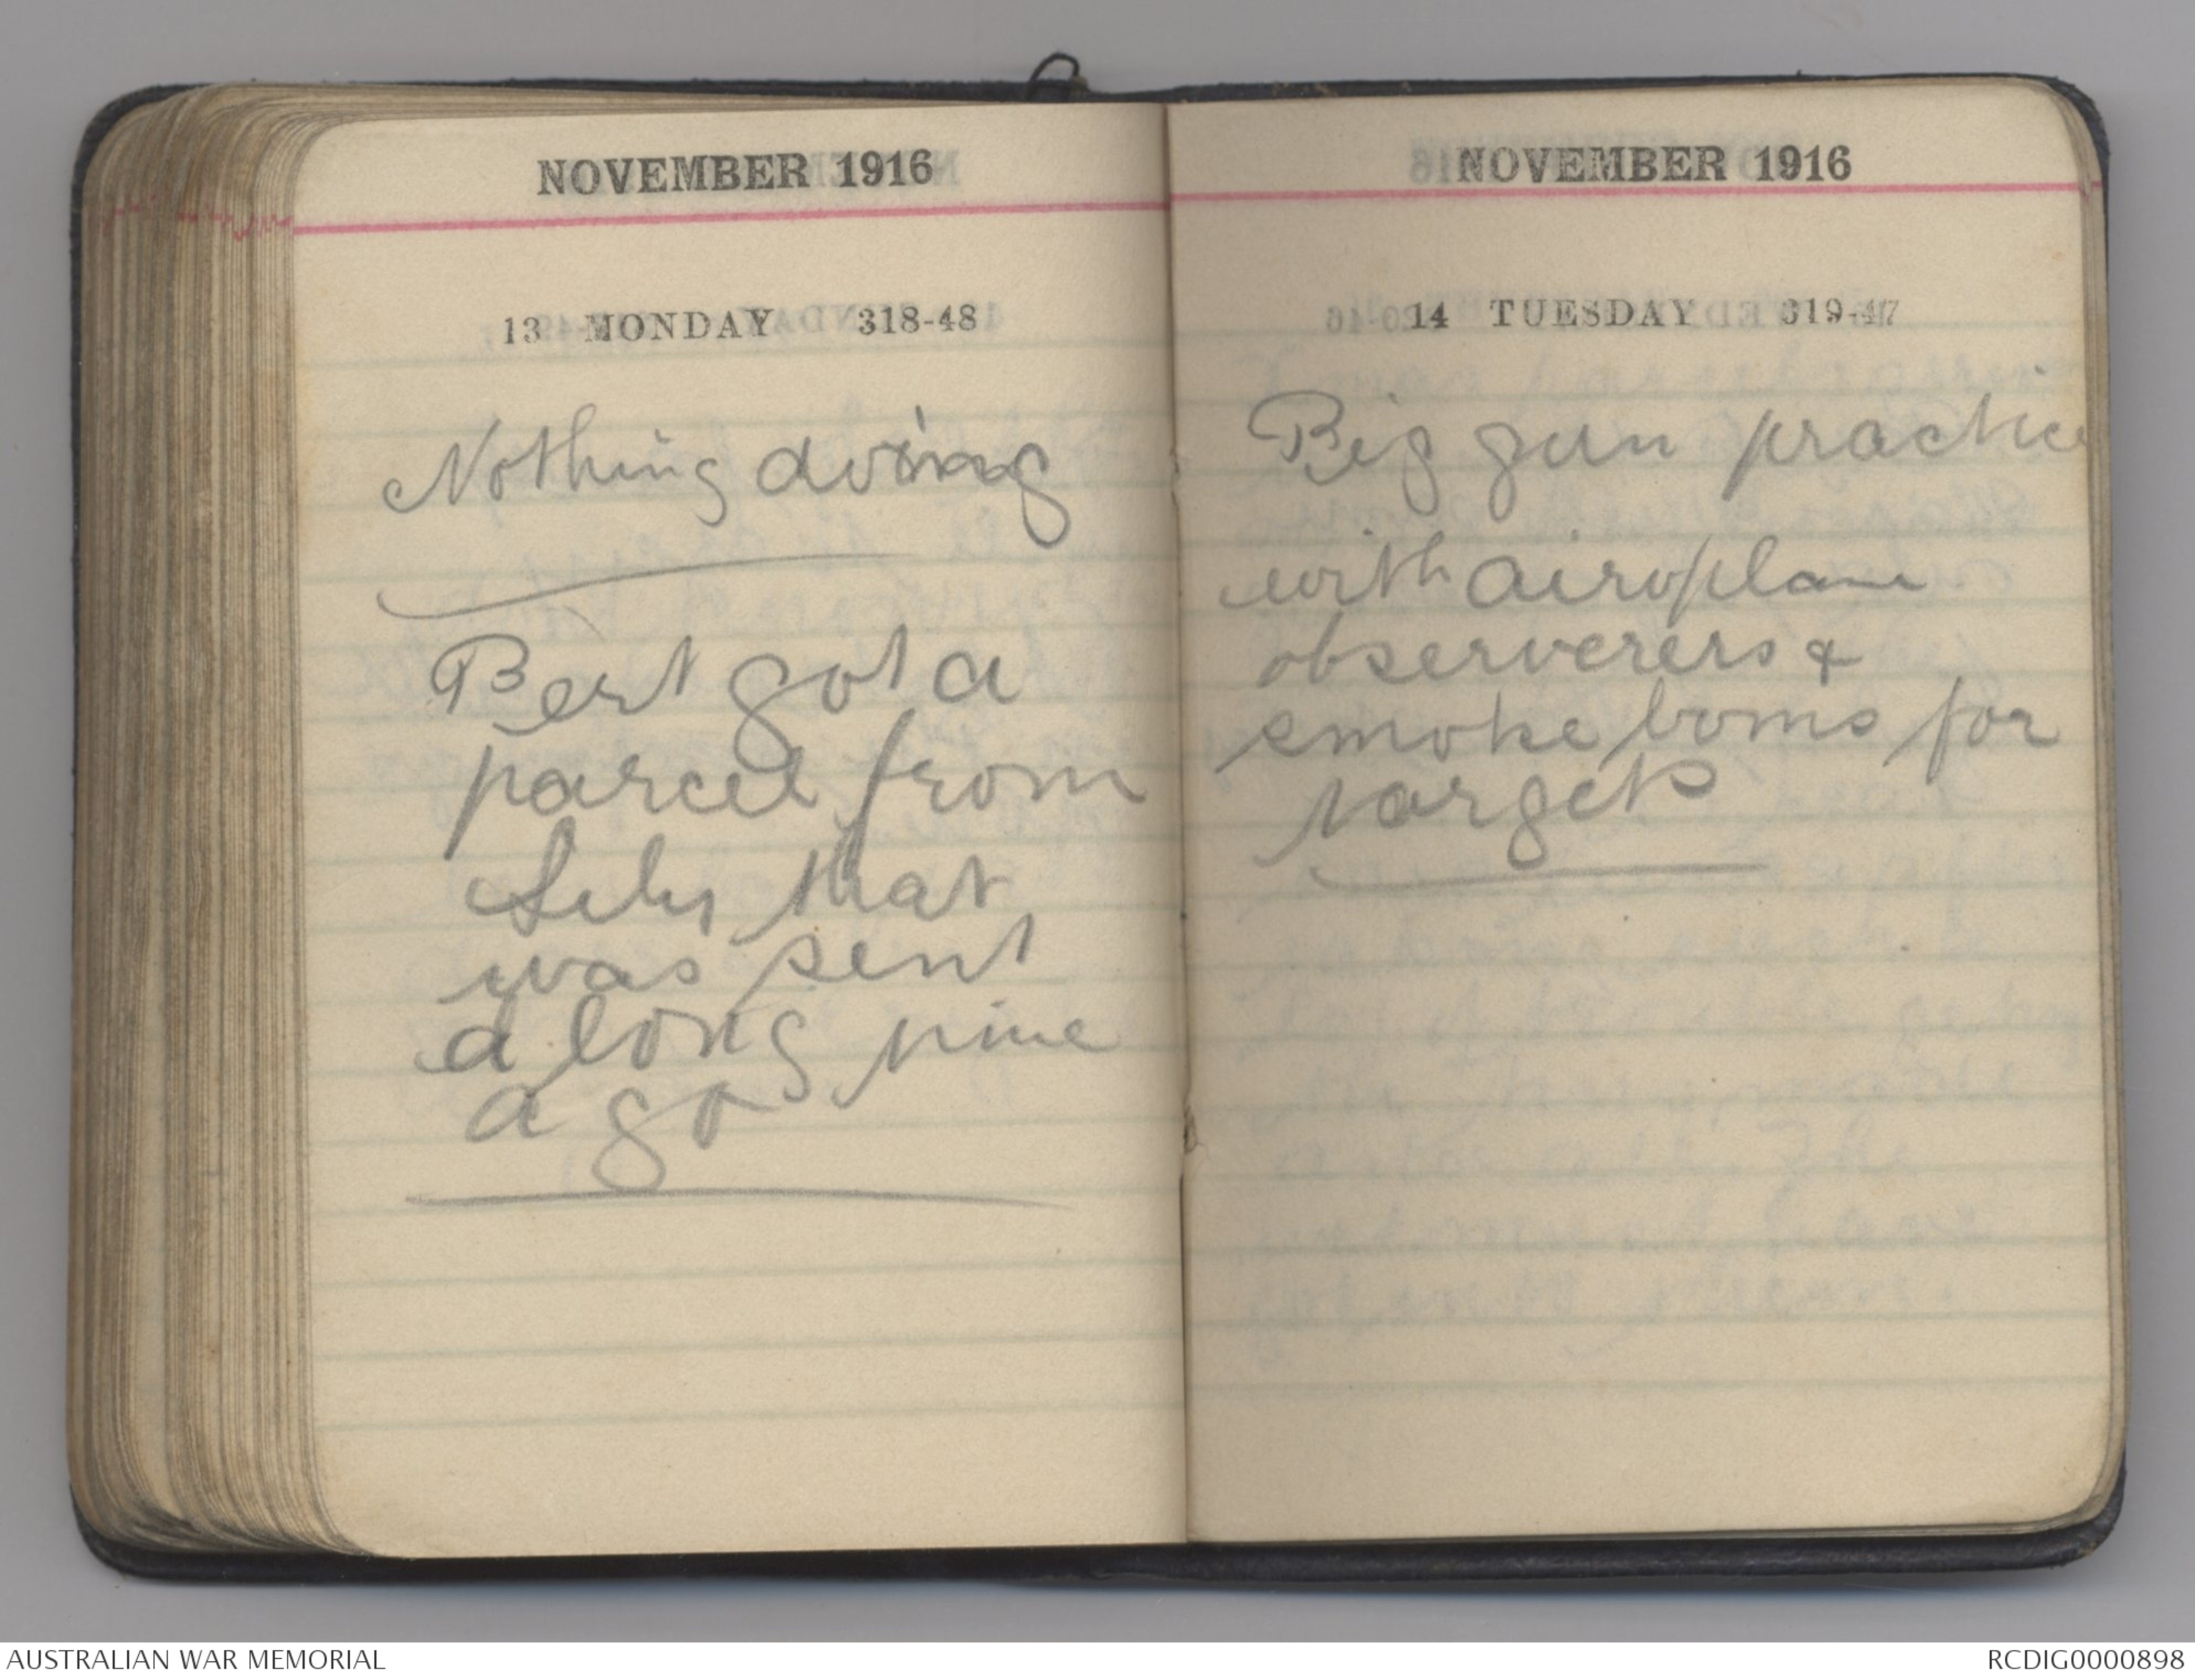 NOVEMBER 1916
13 MONDAY 318-48
Nothing doing
Bert got a
parcel from
that
was sent
a long time
ago
NOVEMBER 1916
14 TUESDAY 319-47
Big gun practice
with airoplane
observerers &
smoke boms for
targets
AUSTRALIAN WAR MEMORIAL
RCDIG0000898